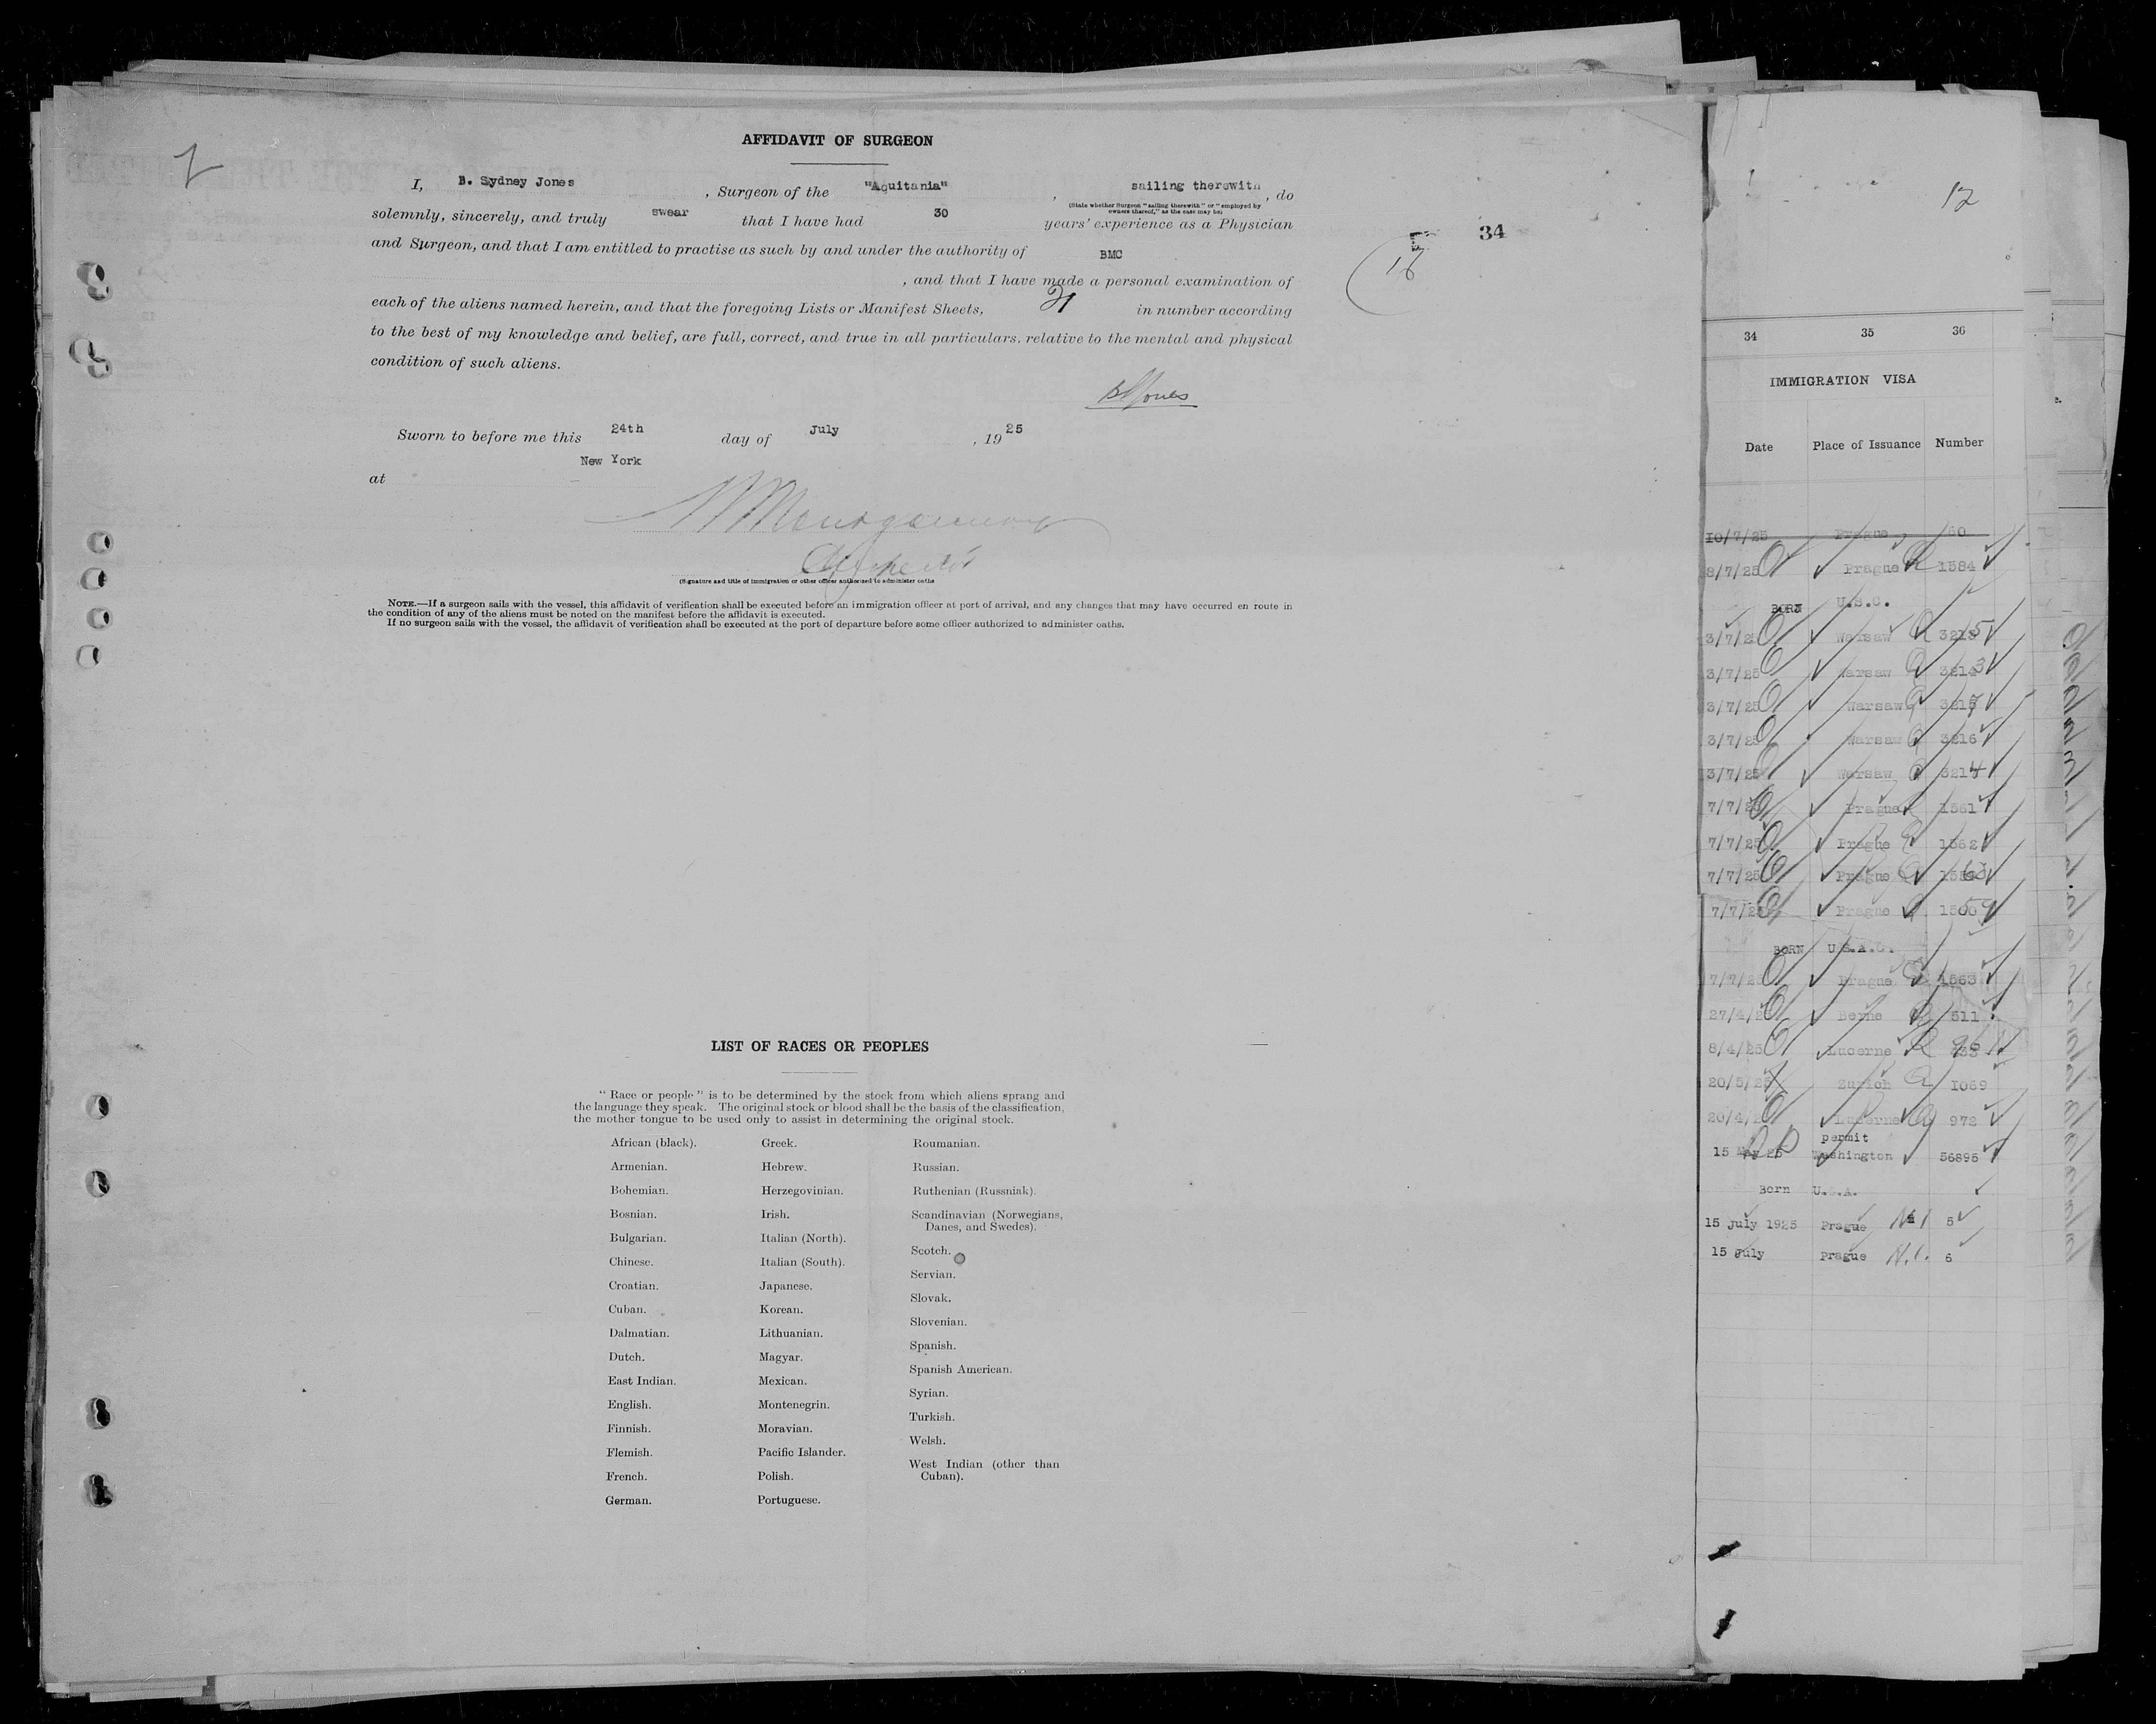 AFFIDAVIT OF SURGEON
I, B. Sydney Jones, Surgeon of the "Aquitania", sailing therewith, do
(State whether Surgeon "sailing therewith" or "employed by
owners thereof," as the case may be)
solemnly, sincerely, and truly swear that I have had 30 years' experience as a Physician
and Surgeon, and that I am entitled to practise as such by and under the authority of BMC
, and that I have made a personal examination of
each of the aliens named herein, and that the foregoing Lists or Manifest Sheets, 21 in number according
to the best of my knowledge and belief, are full, correct, and true in all particulars, relative to the mental and physical
condition of such aliens.
BSJones
Sworn to before me this 24th day of July, 1925
at New York
Inspector
(Signature and title of immigration or other officer authorized to administer oaths
NOTE.—If a surgeon sails with the vessel, this affidavit of verification shall be executed before an immigration officer at port of arrival, and any changes that may have occurred en route in
the condition of any of the aliens must be noted on the manifest before the affidavit is executed.
If no surgeon sails with the vessel, the affidavit of verification shall be executed at the port of departure before some officer authorized to administer oaths.
34
LIST OF RACES OR PEOPLES
"Race or people" is to be determined by the stock from which aliens sprang and
the language they speak. The original stock or blood shall be the basis of the classification,
the mother tongue to be used only to assist in determining the original stock.
African (black).
Armenian.
Bohemian.
Bosnian.
Bulgarian.
Chinese.
Croatian.
Cuban.
Dalmatian.
Dutch.
East Indian.
English.
Finnish.
Flemish.
French.
German.
Greek.
Hebrew.
Herzegovinian.
Irish.
Italian (North).
Italian (South).
Japanese.
Korean.
Lithuanian.
Magyar.
Mexican.
Montenegrin.
Moravian.
Pacific Islander.
Polish.
Portuguese.
Roumanian.
Russian.
Ruthenian (Russniak).
Scandinavian (Norwegians,
Danes, and Swedes).
Scotch.
Servian.
Slovak.
Slovenian.
Spanish.
Spanish American.
Syrian.
Turkish.
Welsh.
West Indian (other than
Cuban).
12
34 35 36
IMMIGRATION VISA
Date Place of Issuance Number
10/7/25 Prague 60
8/7/25 Prague 1584
BORN U.S.C.
3/7/25 Warsaw 3215
3/7/25 Warsaw 3213
3/7/25 Warsaw 3217
3/7/25 Warsaw 3216
3/7/25 Warsaw 3214
7/7/25 Prague 1561
7/7/25 Prague 1562
7/7/25 Prague
7/7/25 Prague 1559
BORN U.S.A.
7/7/25 Prague 1563
27/4/25 Berne 511
8/4/25 Lucerne
20/5/25 Zurich 1069
20/4/25 Lucerne 972
permit
15 May 25 Washington 56895
Born U.S.A.
15 July 1925 Prague 5
15 July Prague N.I. 6